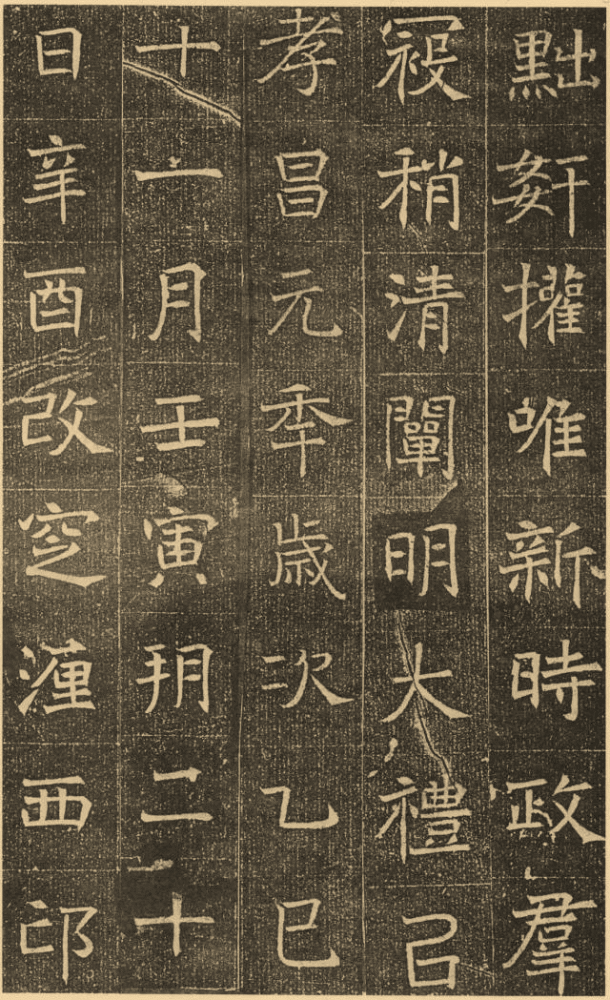 黜奸擢唯新時政羣
祲稍清闡明大禮以
孝昌元年歲次乙巳
十一月壬寅朔二十
日辛酉改窆瀍西邙